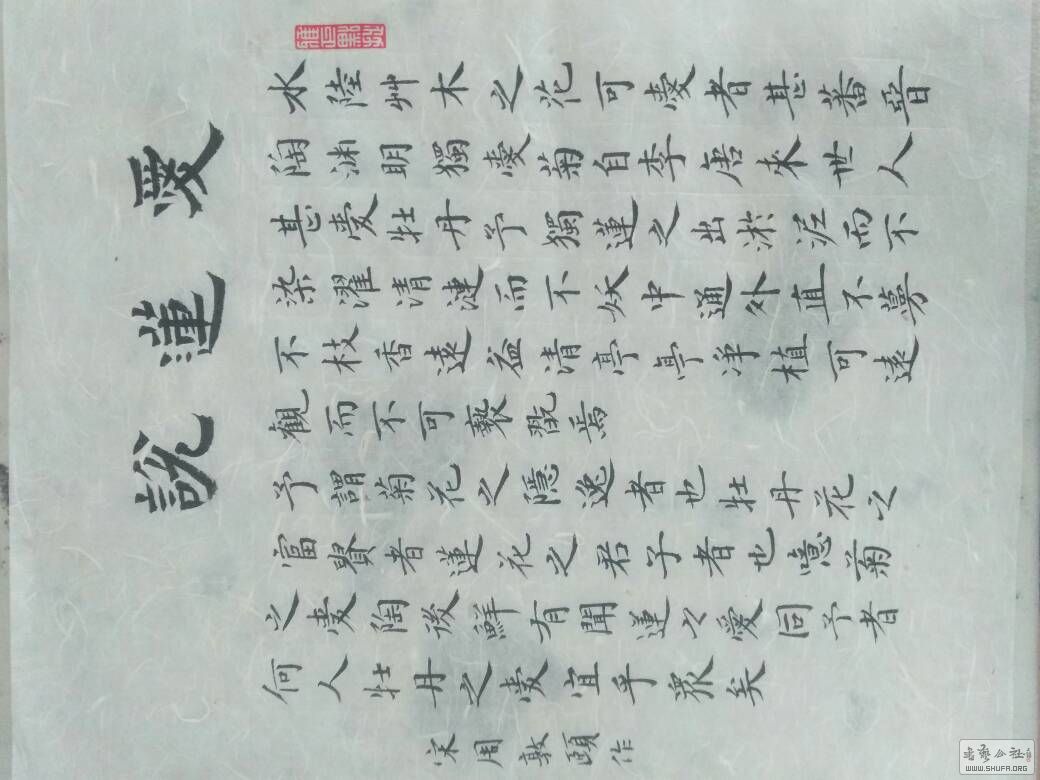 愛蓮說
水陸艸木之花可愛者甚蕃晉
陶渊明獨愛菊自李唐來世人
甚愛牡丹予獨蓮之出淤泥而不
染濯清漣而不妖中通外直不蔓
不枝香遠益清亭亭净植可遠
観而不可褻翫焉
予謂菊花之隱逸者也牡丹花之
富賢者蓮花之君子者也噫菊
之愛陶後鮮有聞蓮之愛同予者
何人牡丹之愛宜乎衆矣
宋周敦頤作
書藝公社
WWW.SHUFA.ORG